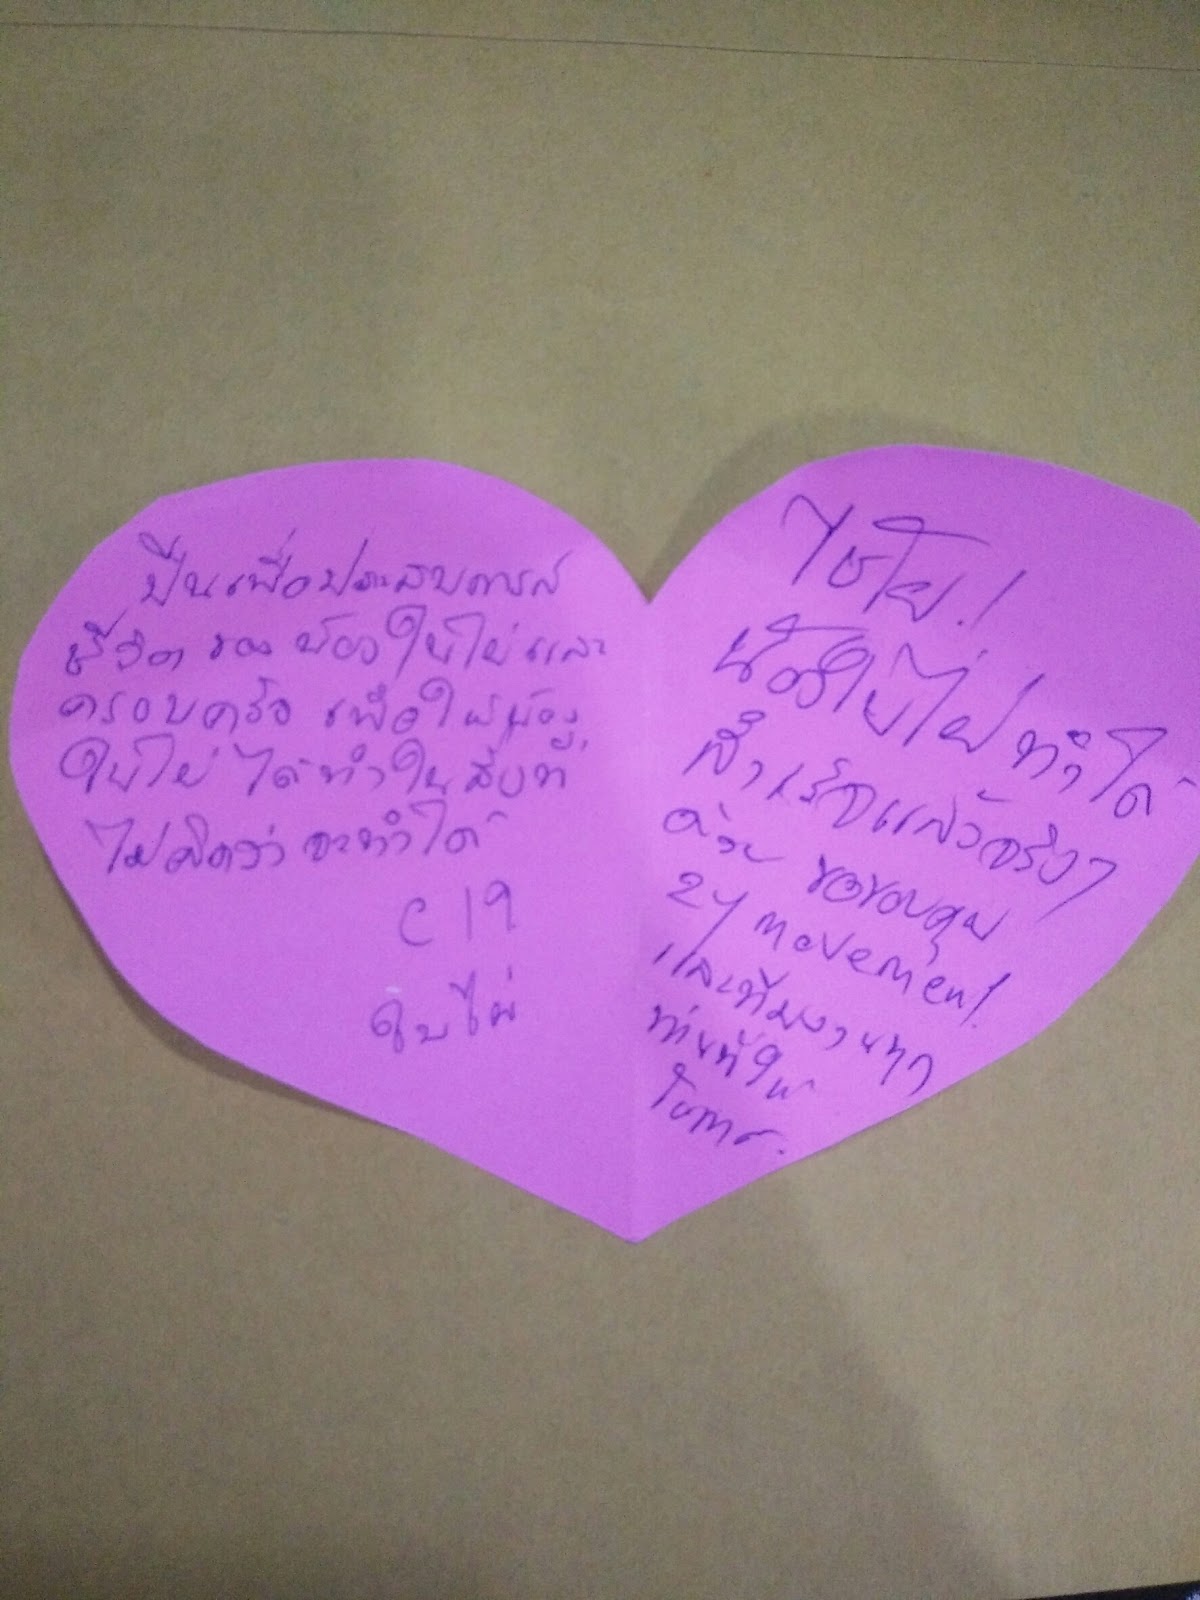 ปีนเพื่อประสบการณ์
ชีวิต ของ น้องใบไผ่และ
ครอบครัว เพื่อให้น้อง
ใบไผ่ ได้ทำในสิ่งที่
ไม่คิดว่า จะทำได้
C19
ใบไผ่
ไชโย!
น้องใบไผ่ ทำได้
สำเร็จแล้วจริงๆ
ด้วย ขอขอบคุณ
movement
และทีมงานทุก
ท่านที่ให้
โอกาส.